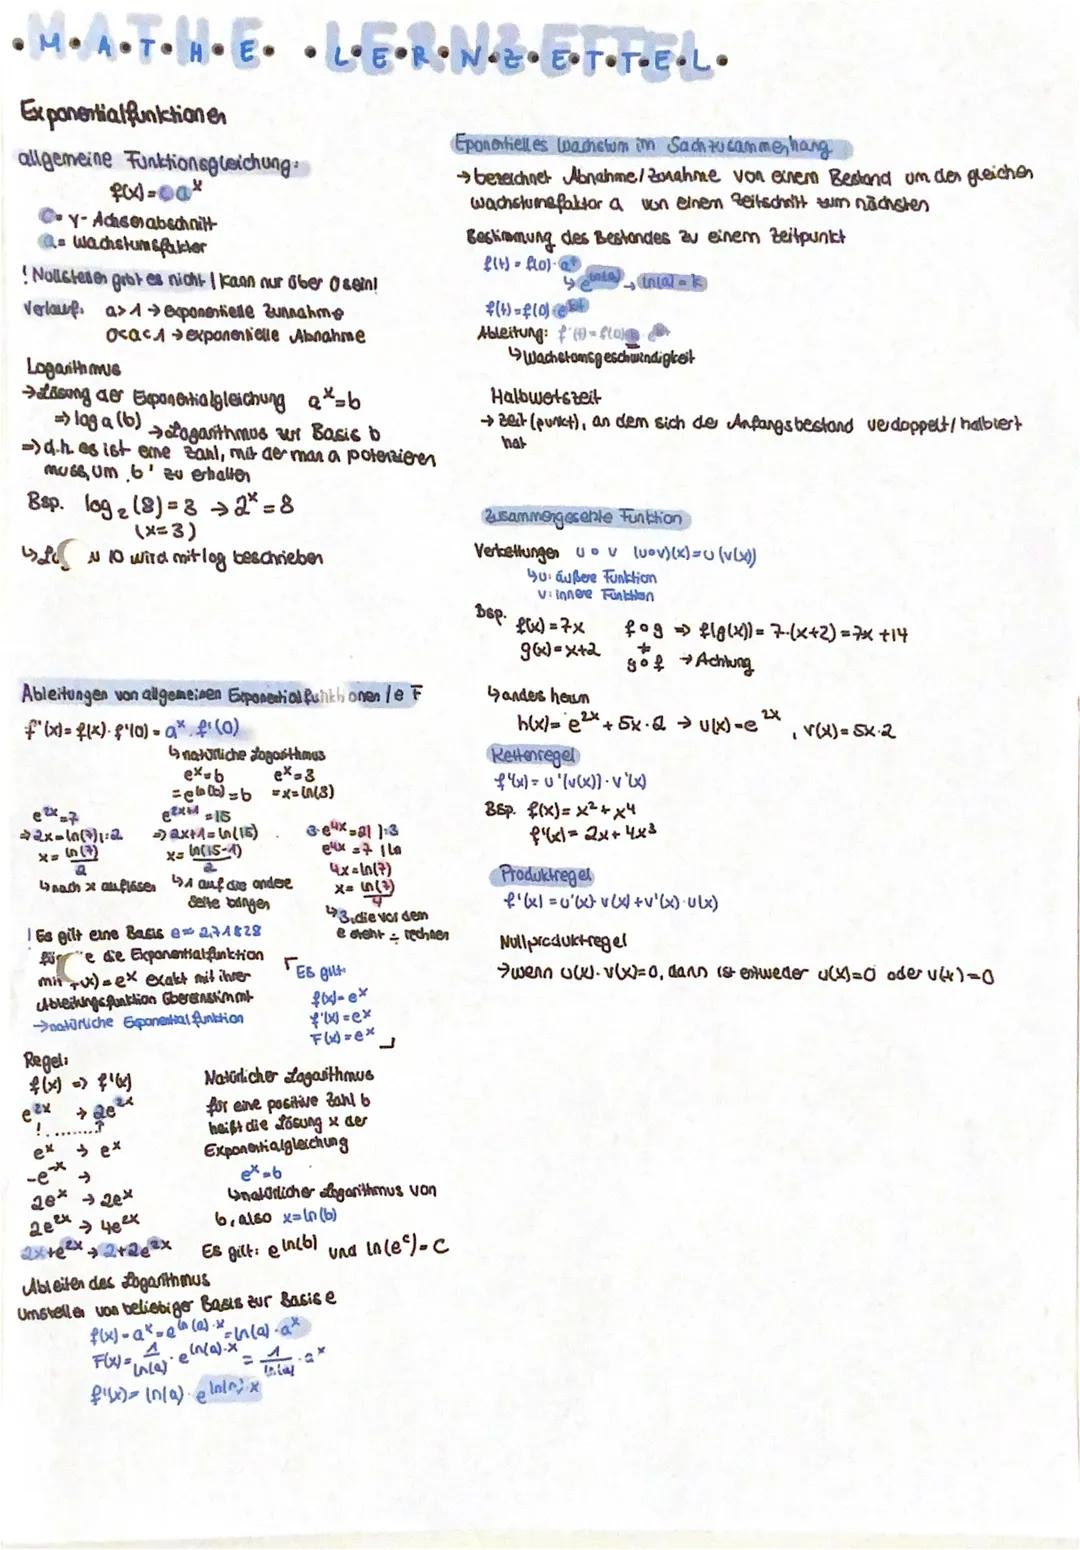 • M • A • T • H • E • • L • E • R • N • Z • E • T • T • E • L •
Exponentialfunktionen
allgemeine Funktionsgleichung:
f(x) = c·a^x
C = y-Achsenabschnitt
a = Wachstumsfaktor
! Nullstellen gibt es nicht | kann nur über 0 sein!
Verlauf: a > 1 → exponentielle Zunahme
0<a<1 → exponentielle Abnahme
Logarithmus
→ Lösung der Exponentialgleichung a^x = b
⇒ log a (b) → Logarithmus zur Basis b
⇒ d.h. es ist eine Zahl, mit der man a potenzieren
muss, um 'b' zu erhalten
Bsp. log₂(8) = 3 → 2^x = 8
(x=3)
10 wird mit log beschrieben
Ableitungen von allgemeinen Exponentialfunktionen / e F
f'(x) = f(x) · f'(0) = a^x · f'(0)
↳ natürliche Logarithmus
e^x = b e^x = 3
= e^ln(b) = b = x = ln(3)
e^2x = 7
⇒ 2x = ln(7) |:2
x = ln(7)/2
↳ nach x auflösen
e^2x+1 = 15
⇒ 2x+1 = ln(15)
x = ln(15-1)/2
↳ 1 auf die andere
Seite bringen
3·e^4x = 21 |:3
e^4x = 7 | ln
4x = ln(7)
x = ln(7)/4
↳ 3, die vor dem
e steht ÷ rechnen
! Es gilt eine Basis e ≈ 2,71828
für e die Exponentialfunktion
mit f(x) = e^x exakt mit ihrer
Ableitungsfunktion übereinstimmt
→ natürliche Exponentialfunktion
Es gilt:
f(x) = e^x
f'(x) = e^x
F(x) = e^x
Regel:
f(x) ⇒ f'(x)
e^2x → 2e^2x
e^x → e^x
-e^-x →
2e^x → 2e^x
2e^2x → 4e^2x
2x+e^2x → 2+2e^2x
Natürlicher Logarithmus
für eine positive Zahl b
heißt die Lösung x der
Exponentialgleichung
e^x = b
↳ natürlicher Logarithmus von
b, also x = ln(b)
Es gilt: e^ln(b) und ln(e^c) = c
Ableiten des Logarithmus
Umstellen von beliebiger Basis zur Basis e
f(x) = a^x = e^ln(a)·x = ln(a)·a^x
F(x) = 1/ln(a) · e^ln(a)·x = 1/ln(a) · a^x
f'(x) = ln(a) · e^ln(a)·x
Eponentielles Wachstum im Sachzusammenhang
→ bezeichnet Abnahme/Zunahme von einem Bestand um den gleichen
Wachstumsfaktor a von einem Zeitschritt zum nächsten
Bestimmung des Bestandes zu einem Zeitpunkt
f(t) = f(0) · a^t
↳ e^ln(a) → ln(a) = k
f(t) = f(0) · e^kt
Ableitung: f'(t) = f(0) · k · e^kt
↳ Wachstumsgeschwindigkeit
Halbwertszeit
→ Zeit (punkt), an dem sich der Anfangsbestand verdoppelt/halbiert
hat
Zusammengesetzte Funktion
Verkettungen u ∘ v (u∘v)(x) = u(v(x))
↳ u: äußere Funktion
v: innere Funktion
Bsp.
f(x) = 7x f∘g ⇒ f(g(x)) = 7·(x+2) = 7x+14
≠
g(x) = x+2 g∘f → Achtung
↳ anders herum
h(x) = e^2x + 5x·2 → u(x) = e^2x, v(x) = 5x·2
Kettenregel
f'(x) = u'(v(x)) · v'(x)
BSP. f(x) = x² + x⁴
f'(x) = 2x + 4x³
Produktregel
f'(x) = u'(x)·v(x) + v'(x)·u(x)
Nullproduktregel
→ wenn u(x)·v(x)=0, dann ist entweder u(x)=0 oder v(x)=0